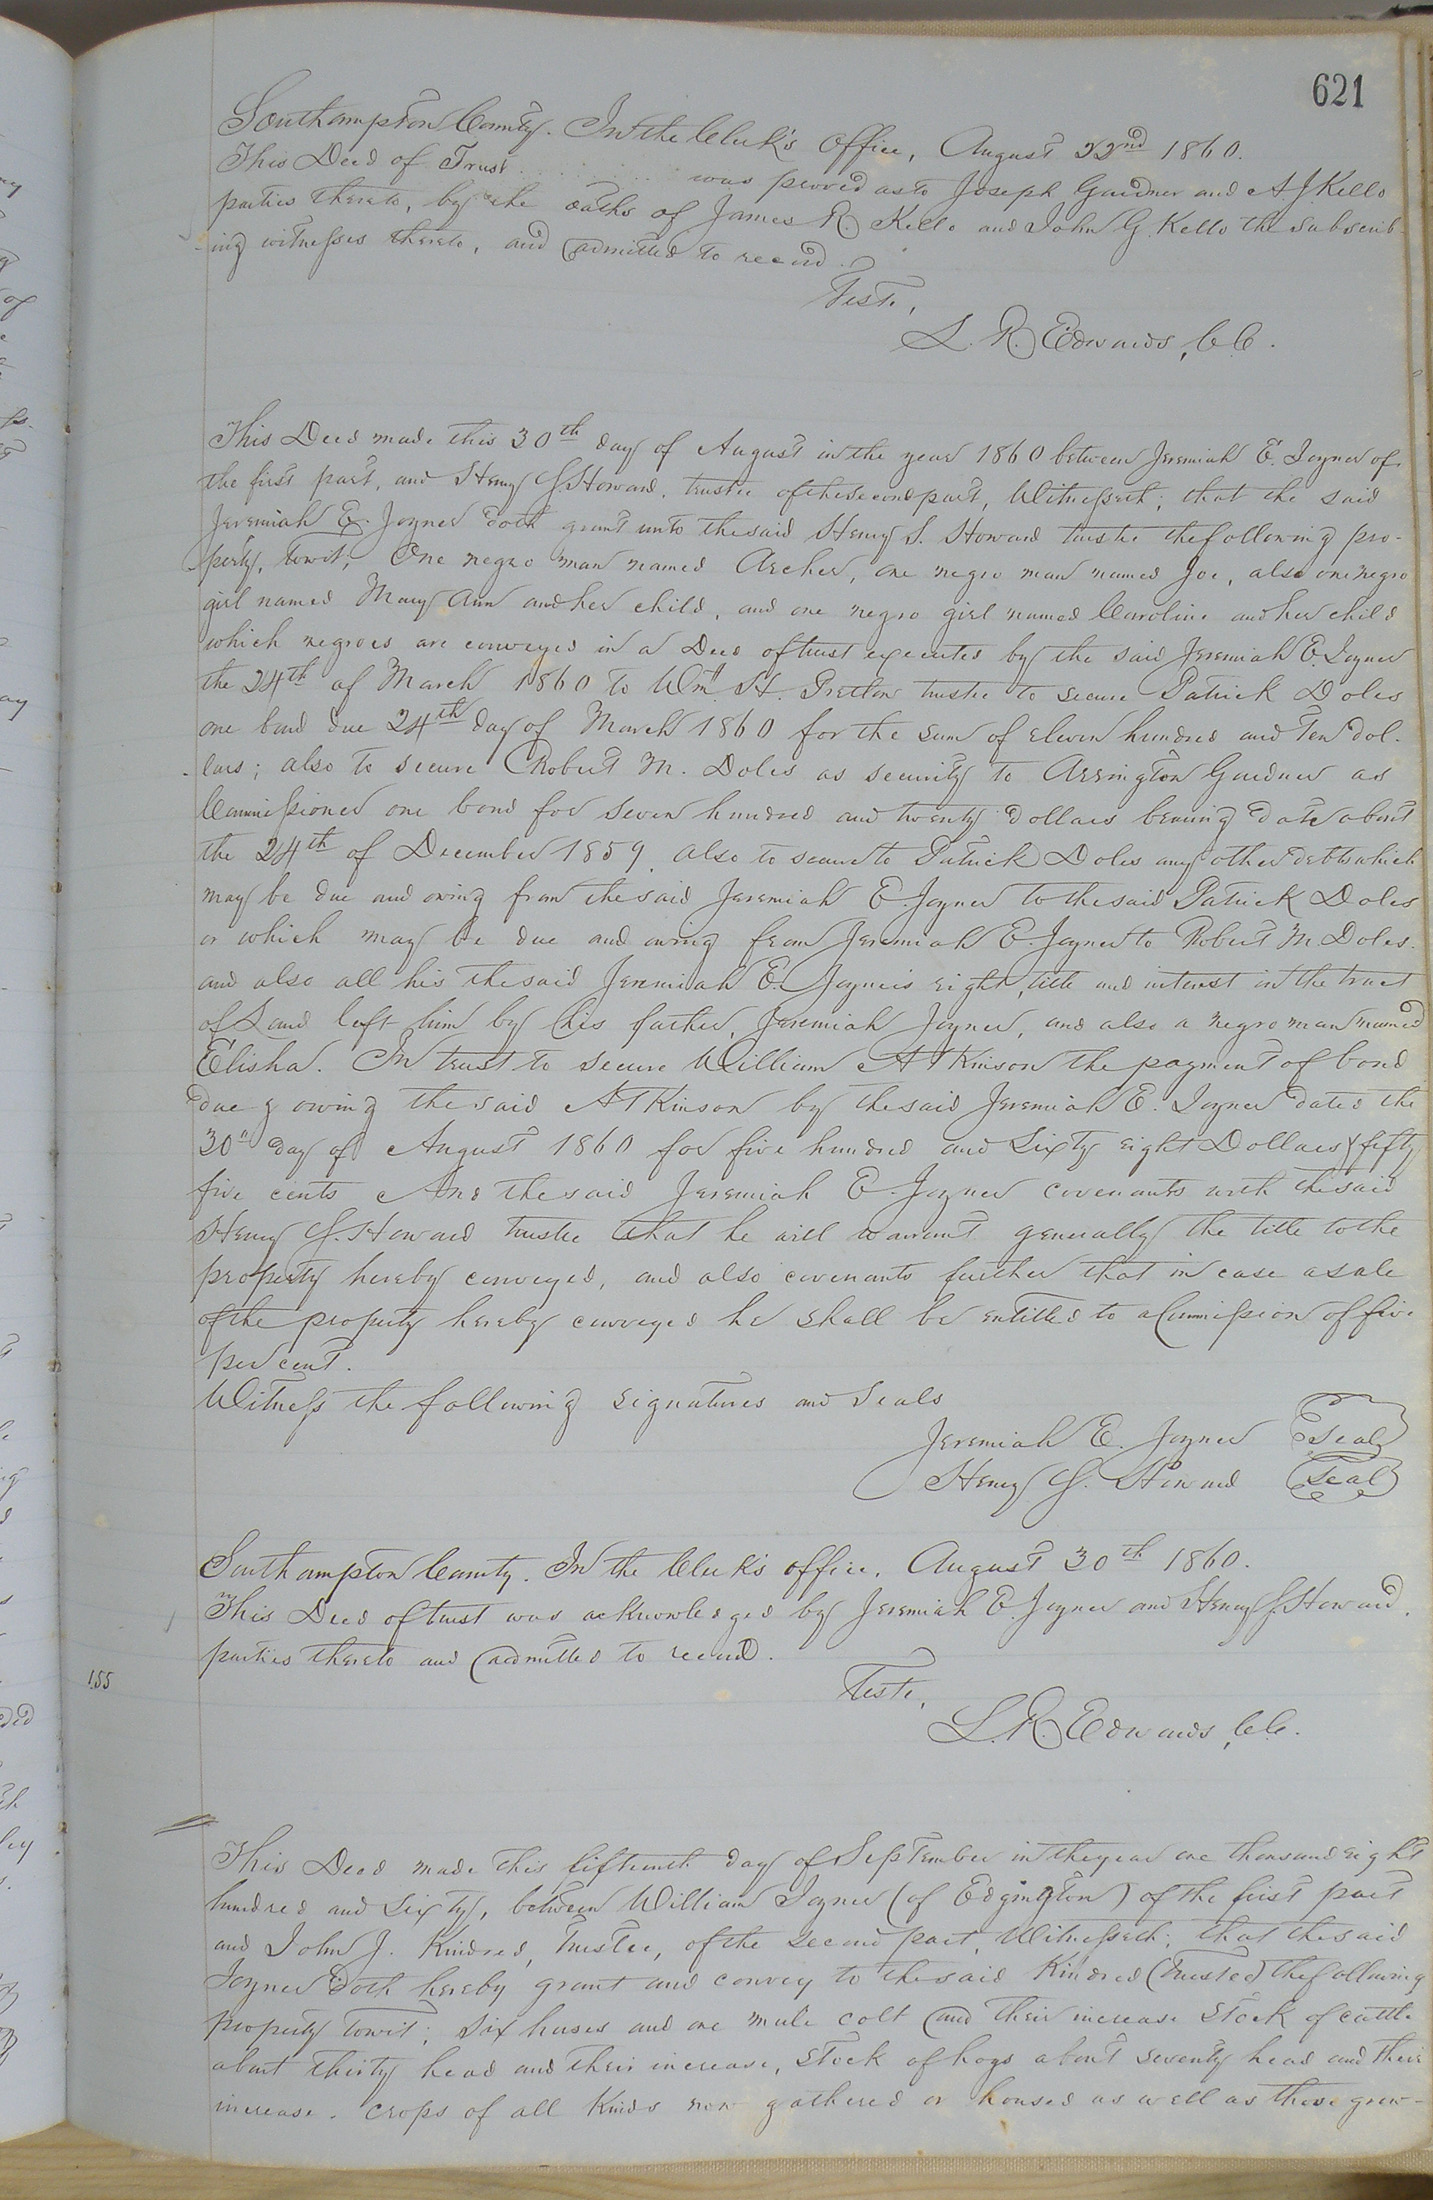 621
Southampton County. In the Clerk's Office, August 22nd 1860.
This Deed of Trust was proved as to Joseph Gardner and A. J. Kello
parties thereto, by the oaths of James R. Kello and John G. Kello the subscrib-
ing witnesses thereto, and admitted to record.
Teste,
L. R. Edwards, C.C.
This Deed made this 30th day of August in the year 1860 between Jeremiah E. Joyner of
the first part, and Henry S. Howard, trustee of the second part, Witnesseth; that the said
Jeremiah E. Joyner doth grant unto the said Henry S. Howard trustee the following pro-
perty, towit; One negro man named Archer, one negro man named Joe, also one negro
girl named Mary Ann and her child, and one negro girl named Caroline and her child
which negroes are conveyed in a Deed of trust executed by the said Jeremiah E. Joyner
the 24th of March 1860 to Wm H. Pretlow trustee to secure Patrick Doles
one bond due 24th day of March 1860 for the sum of eleven hundred and Ten dol-
lars; also to secure Robert M. Doles as security to Arrington Gardner as
Commissioner one bond for seven hundred and twenty dollars bearing date about
the 24th of December 1859, also to secure to Patrick Doles any other debts which
may be due and owing from the said Jeremiah E. Joyner to the said Patrick Doles
or which may be due and owing from Jeremiah E. Joyner to Robert M. Doles.
and also all his the said Jeremiah E. Joyner's right, title and interest in the tract
of Land left him by his father, Jeremiah Joyner, and also a negro man named
Elisha. In trust to secure William Atkinson the payment of bond
due & owing the said Atkinson by the said Jeremiah E. Joyner dated the
30th day of August 1860 for five hundred and Sixty eight Dollars & fifty
five cents And the said Jeremiah E. Joyner covenants with the said
Henry S. Howard trustee that he will warrant generally the title to the
property hereby conveyed, and also covenants further that in case a sale
of the property hereby conveyed he shall be entitled to a Commission of five
per cent.
Witness the following signatures and Seals
Jeremiah E. Joyner Seal
Henry S. Howard Seal
Southampton County. In the Clerk's office, August 30th 1860.
This Deed of trust was acknowledged by Jeremiah E. Joyner and Henry S. Howard,
parties thereto and admitted to record.
155
Teste,
L. R. Edwards, C.C.
This Deed made this fifteenth day of September in the year one thousand eight
hundred and sixty, between William Joyner (of Edgington) of the first part
and John J. Kindred, Trustee, of the second part, Witnesseth; that the said
Joyner doth hereby grant and convey to the said Kindred (Trustee) the following
property towit; six horses and one mule colt and their increase stock of cattle
about thirty head and their increase, stock of hogs about seventy head and their
increase. crops of all kinds now gathered or housed as well as those grow-